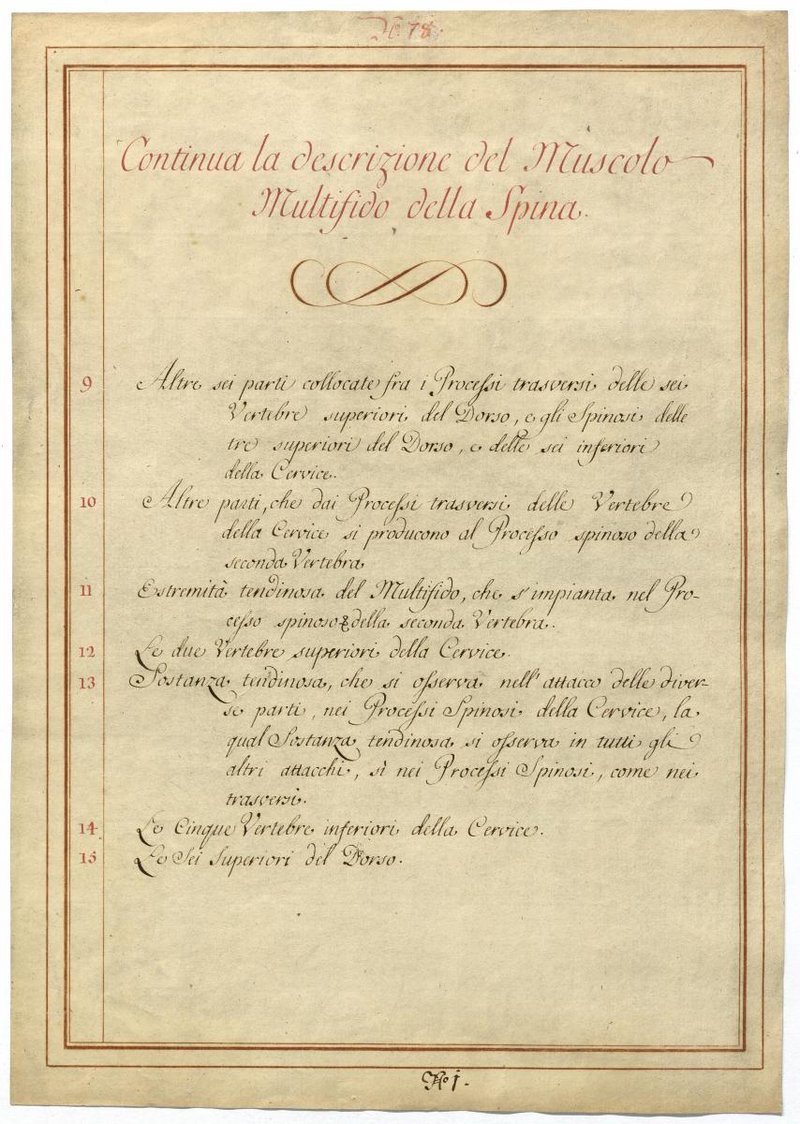 N. 78.
Continua la descrizione del Muscolo
Multifido della Spina.
9 Altre sei parti collocate fra i Processi trasversi delle sei
Vertebre superiori del Dorso, e gli Spinosi delle
tre superiori del Dorso, e delle sei inferiori
della Cervice.
10 Altre parti, che dai Processi trasversi delle Vertebre
della Cervice si producono al Processo spinoso della
seconda Vertebra
11 Estremità tendinosa del Multifido, che s'impianta nel Pro-
cesso spinoso della seconda Vertebra.
12 Le due Vertebre superiori della Cervice.
13 Sostanza tendinosa, che si osserva nell'attacco delle diver-
se parti, nei Processi Spinosi della Cervice, la
qual Sostanza tendinosa si osserva in tutti gli
altri attacchi, sì nei Processi Spinosi, come nei
trasversi.
14 Le Cinque Vertebre inferiori della Cervice.
15 Le Sei Superiori del Dorso.
No 1.